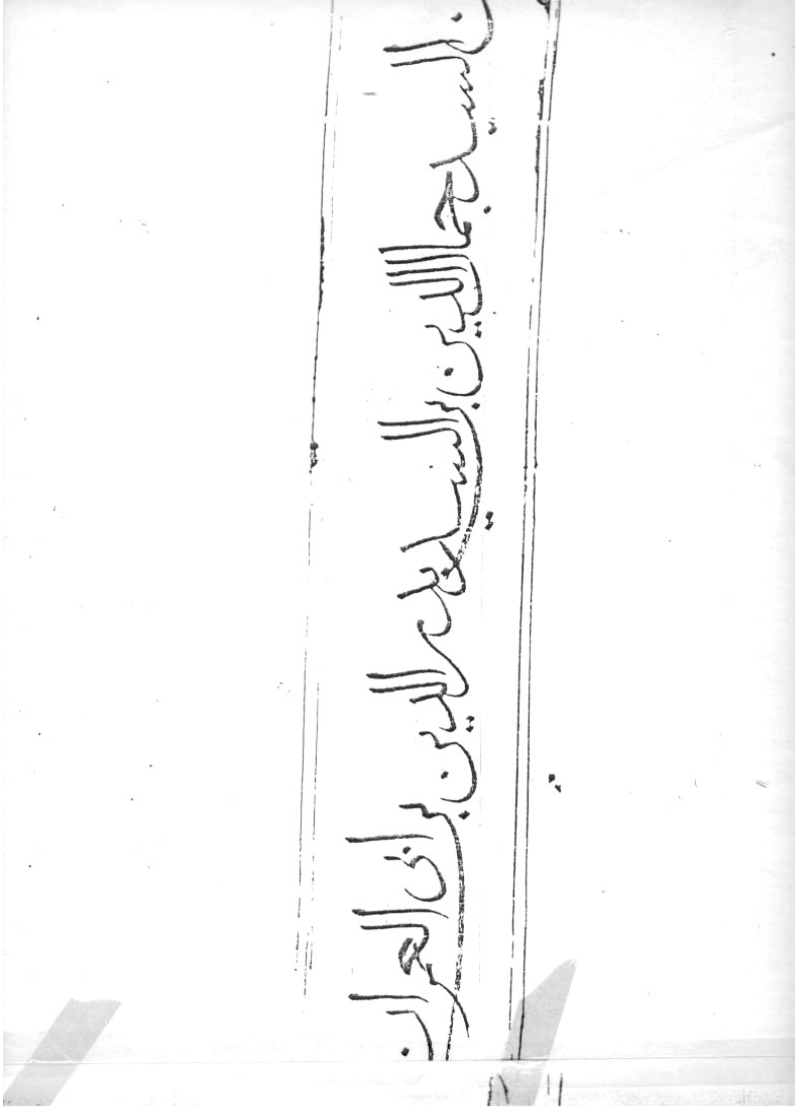 ن السيد جمال الدين بن السيد بدر الدين بن ابى العز ابن